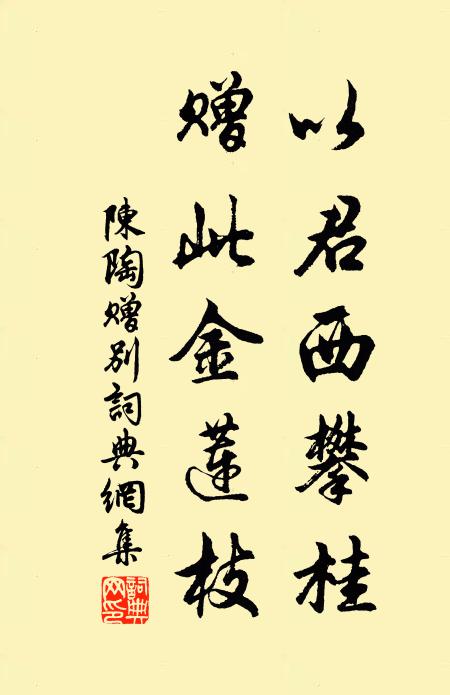 以君西攀桂
贈此金蓮枝
陳陶贈別詞典網集
詞典網印